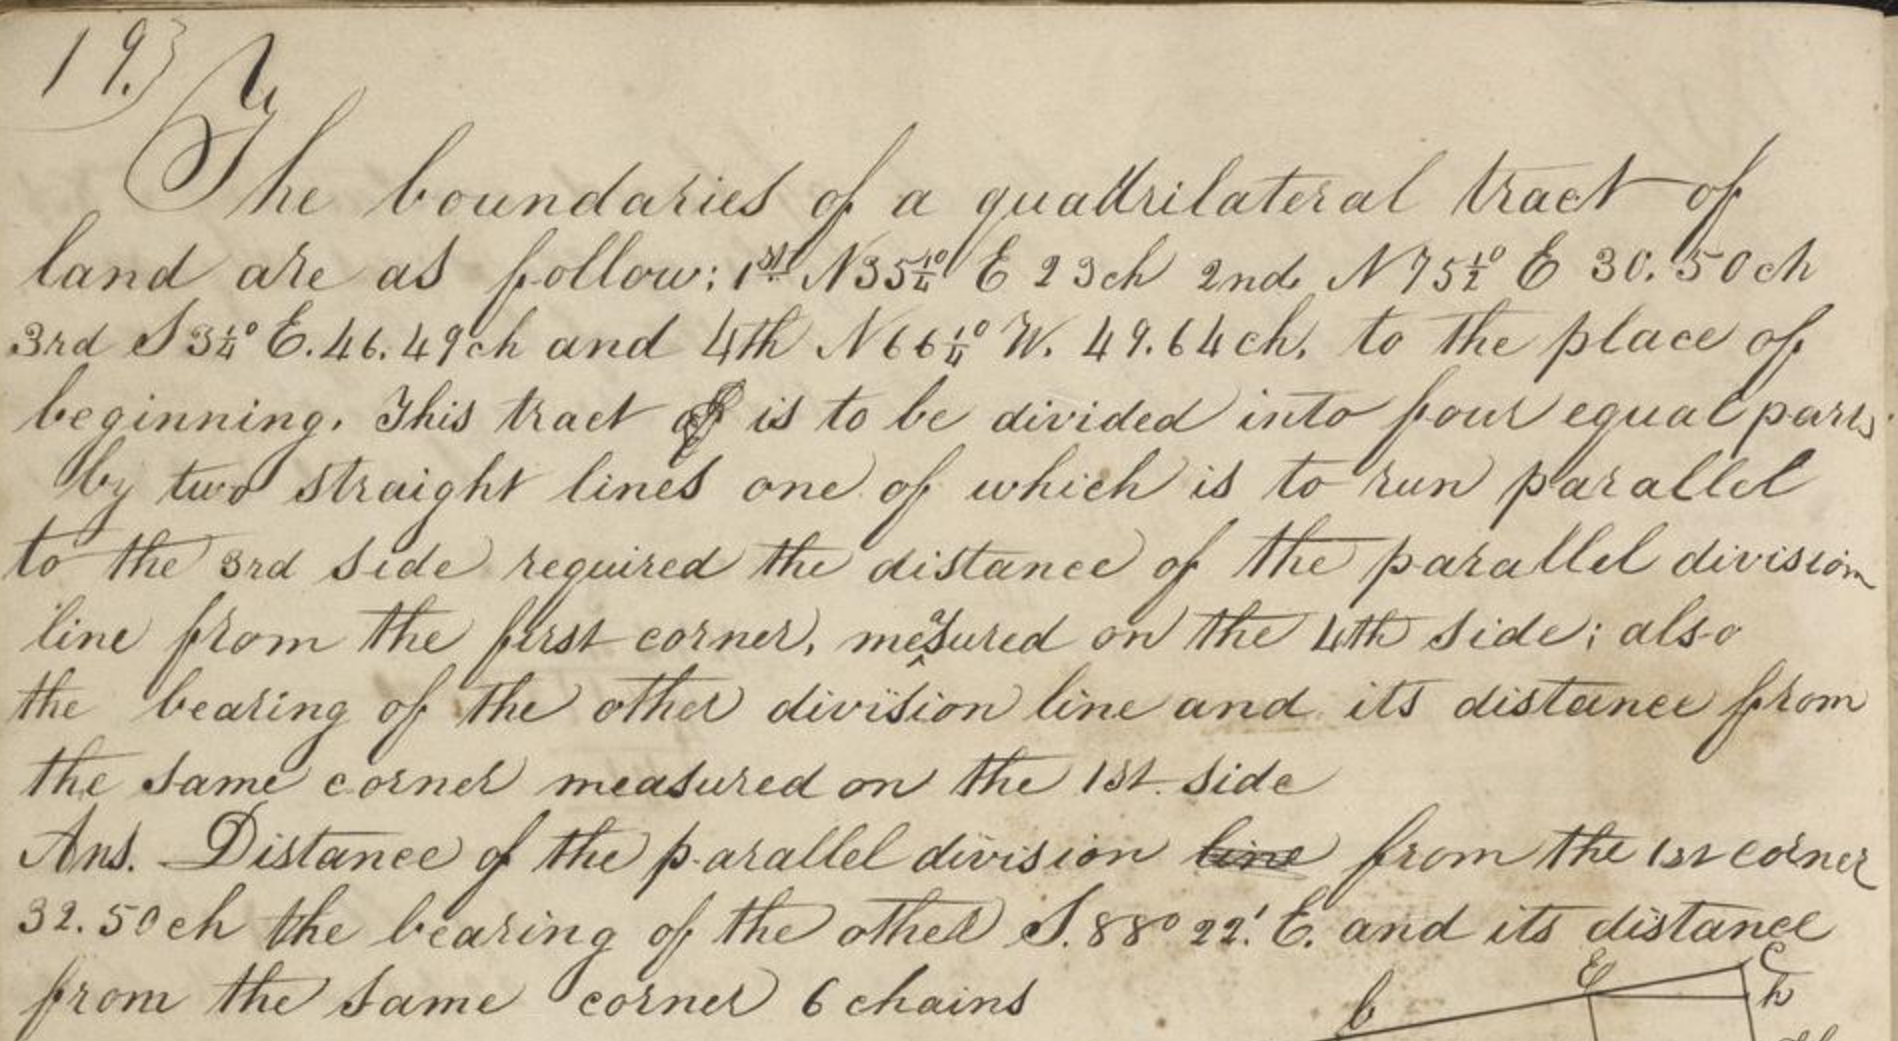 193
The boundaries of a quadrilateral tract of
land are as follow: 1st N35¼° E 23ch 2nd N75½° E 30.50ch
3rd S3¼° E. 46.49ch and 4th N66¼° W. 49.64ch. to the place of
beginning. This tract is to be divided into four equal parts
by two straight lines one of which is to run parallel
to the 3rd side required the distance of the parallel division
line from the first corner, measured on the 4th side; also
the bearing of the other division line and its distance from
the same corner measured on the 1st. side
Ans. Distance of the parallel division line from the 1st corner
32.50ch the bearing of the other S. 88° 22'. E. and its distance
from the same corner 6 chains
b E C
h